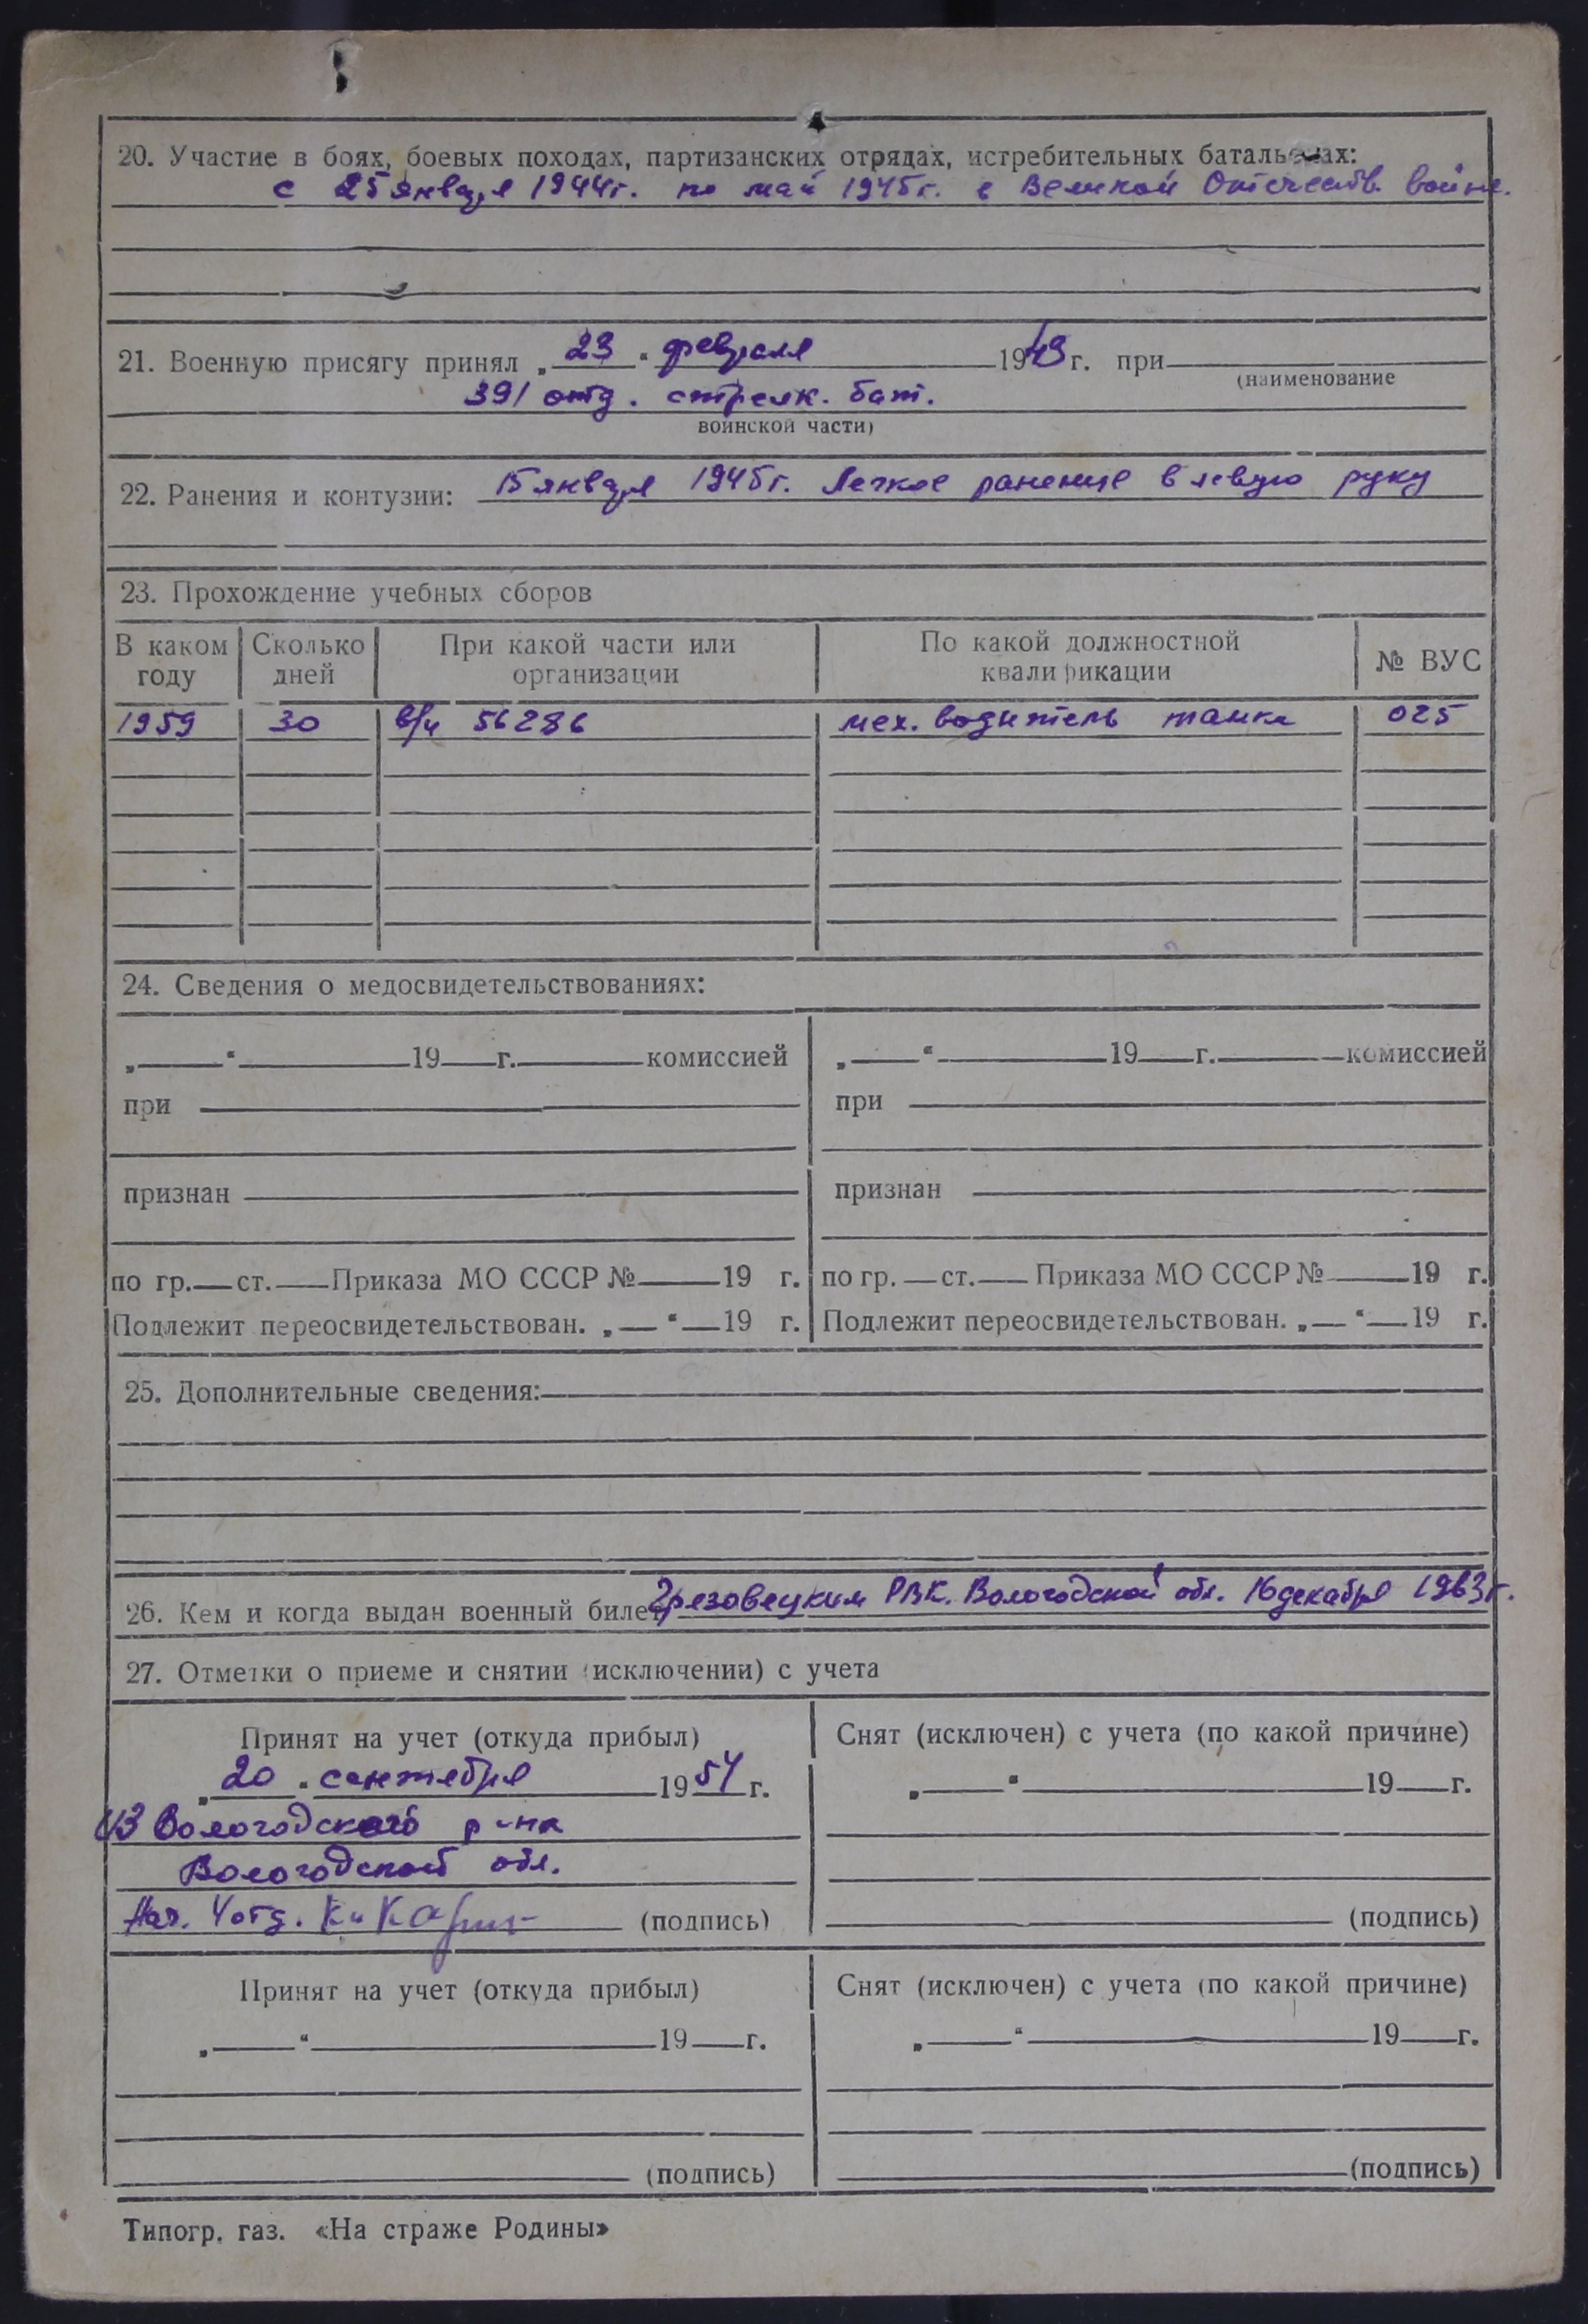 20. Участие в боях, боевых походах, партизанских отрядах, истребительных батальонах:
с 25 января 1944 г. по май 1945 г. в Великой Отечеств. войне.
21. Военную присягу принял „ 23 “ февраля 1943 г. при
(наименование
391 отд. стрелк. бат.
воинской части)
22. Ранения и контузии: 15 января 1945 г. Легкое ранение в левую руку
23. Прохождение учебных сборов
В каком году Сколько дней При какой части или организации По какой должностной квалификации № ВУС
1959 30 в/ч 56286 мех. водитель танка 025
24. Сведения о медосвидетельствованиях:
„ “ 19 г. комиссией
при
признан
по гр. ст. Приказа МО СССР № 19 г.
Подлежит переосвидетельствован. „ “ 19 г.
„ “ 19 г. комиссией
при
признан
по гр. ст. Приказа МО СССР № 19 г.
Подлежит переосвидетельствован. „ “ 19 г.
25. Дополнительные сведения:
26. Кем и когда выдан военный билет Грязовецким РВК. Вологодской обл. 16 декабря 1963 г.
27. Отметки о приеме и снятии (исключении) с учета
Принят на учет (откуда прибыл)
„ 20 “ сентября 19 54 г.
из Вологодского р-на
Вологодской обл.
Нач. 4 отд. (подпись)
Снят (исключен) с учета (по какой причине)
„ “ 19 г.
(подпись)
Принят на учет (откуда прибыл)
„ “ 19 г.
(подпись)
Снят (исключен) с учета (по какой причине)
„ “ 19 г.
(подпись)
Типогр. газ. «На страже Родины»